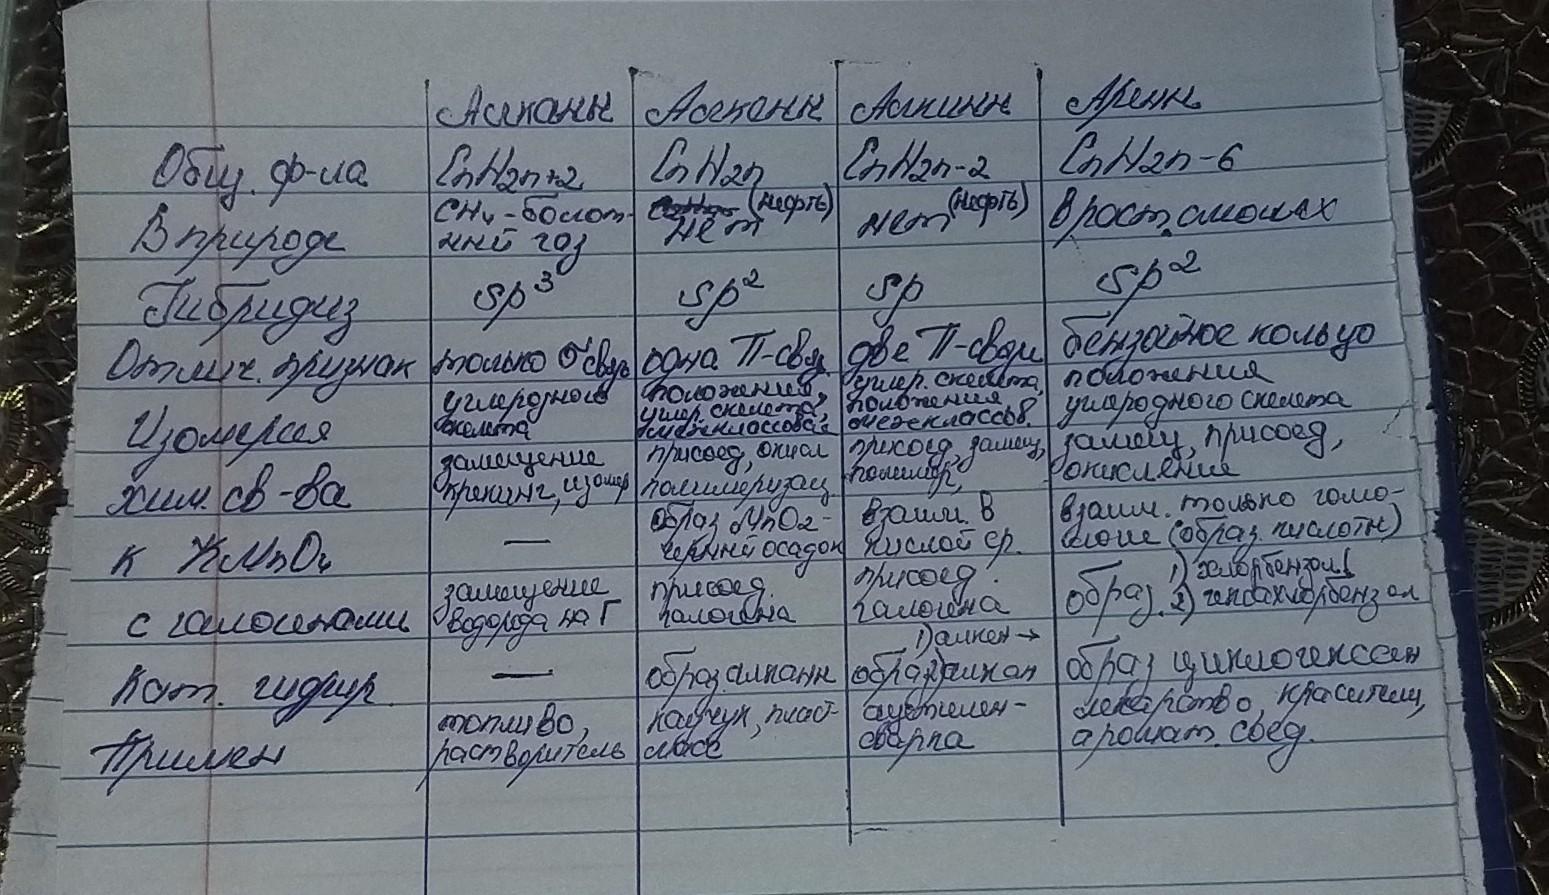 Алканы Алкены Алкины Арены
Общ. ф-ла CnH2n+2 CnH2n CnH2n-2 CnH2n-6
В природе CH4-болот- ный газ нет (нефть) нет (нефть) в раст. смолах
Гибридиз sp3 sp2 sp sp2
Отлич. признак только σ связь одна П-связ. две П-связи бензольное кольцо
Изомерия углеродного скелета положения, углер. скелета, межклассовая углер. скелета, положения межклассов. положения углеродного скелета
хим. св-ва замещение крекинг, изомер присоед, окисл полимеризац присоед, замещ, полимер, замещ, присоед, окисление
к KMnO4 — образ. MnO2- черный осадок взаим. в кислой ср. взаим. только гомо- логи (образ. кислоты)
с галогенами замещение водорода на Г присоед. галогена присоед. галогена образ. 1) хлорбензол 2) гексахлорбензол
Кат. гидрир. — образ. алканы образ 1) алкен → 2) алкан образ циклогексан
Примен топливо, растворитель каучук, пласт- масс ацетилен- сварка лекарство, красители, аромат. соед.